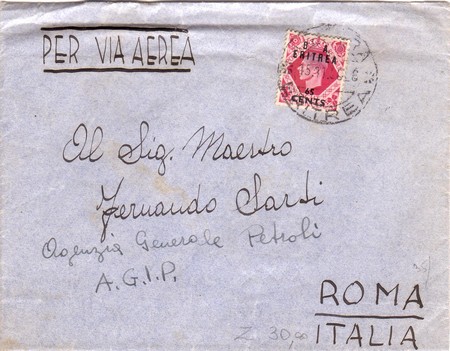 PER VIA AEREA
B. A.
ERITREA
65
CENTS
ERITREA
Al Sig. Maestro
Fernando Sarti
Agenzia Generale Petroli
A.G.I.P.
ROMA
ITALIA
30,00